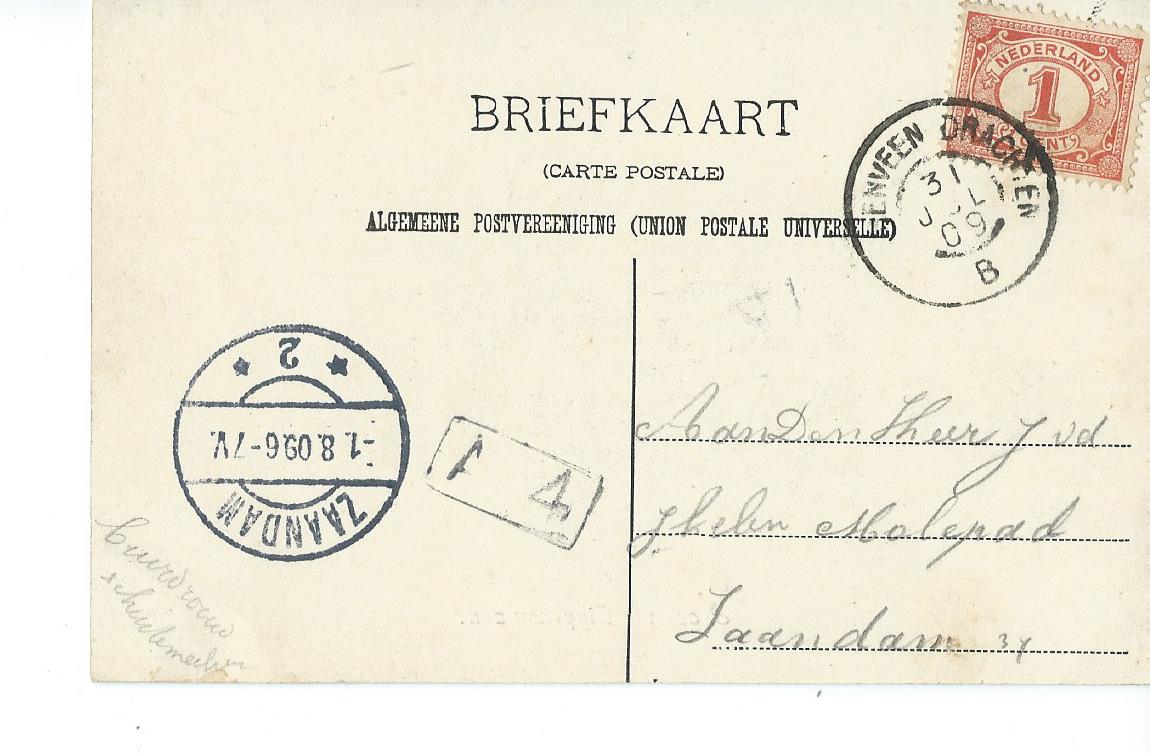 NEDERLAND
1
CENT
BRIEFKAART
(CARTE POSTALE)
ALGEMEENE POSTVEREENIGING (UNION POSTALE UNIVERSELLE)
ENVEEN DRACHTEN
31
JUL
09
B
2
-1.8.09.6-7V.
ZAANDAM
1 4
Aan Den Heer J vd
Molepad
Zaandam 37